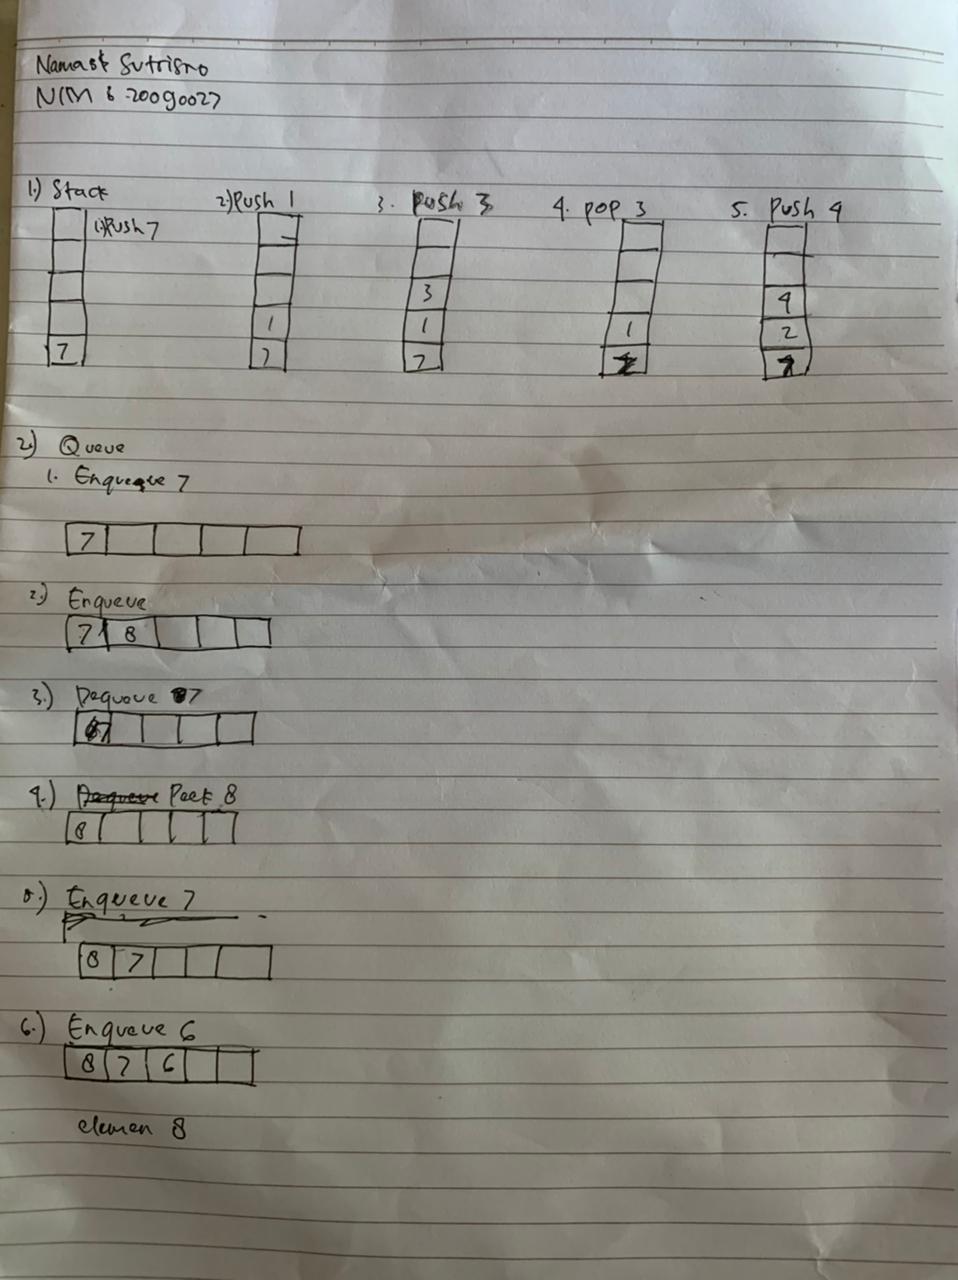 Nama : Sutrisno
NIM : 20090027
1.) Stack
1.) Push 7
7
2.) Push 1
1
7
3. Push 3
3
1
7
4. pop 3
1
5. Push 4
4
2
7
2.) Queue
1. Enqueque 7
7
2.) Enqueue
7 8
3.) Dequeue 7
4.) Peek 8
8
5.) Enqueue 7
8 7
6.) Enqueue 6
8 7 6
elemen 8